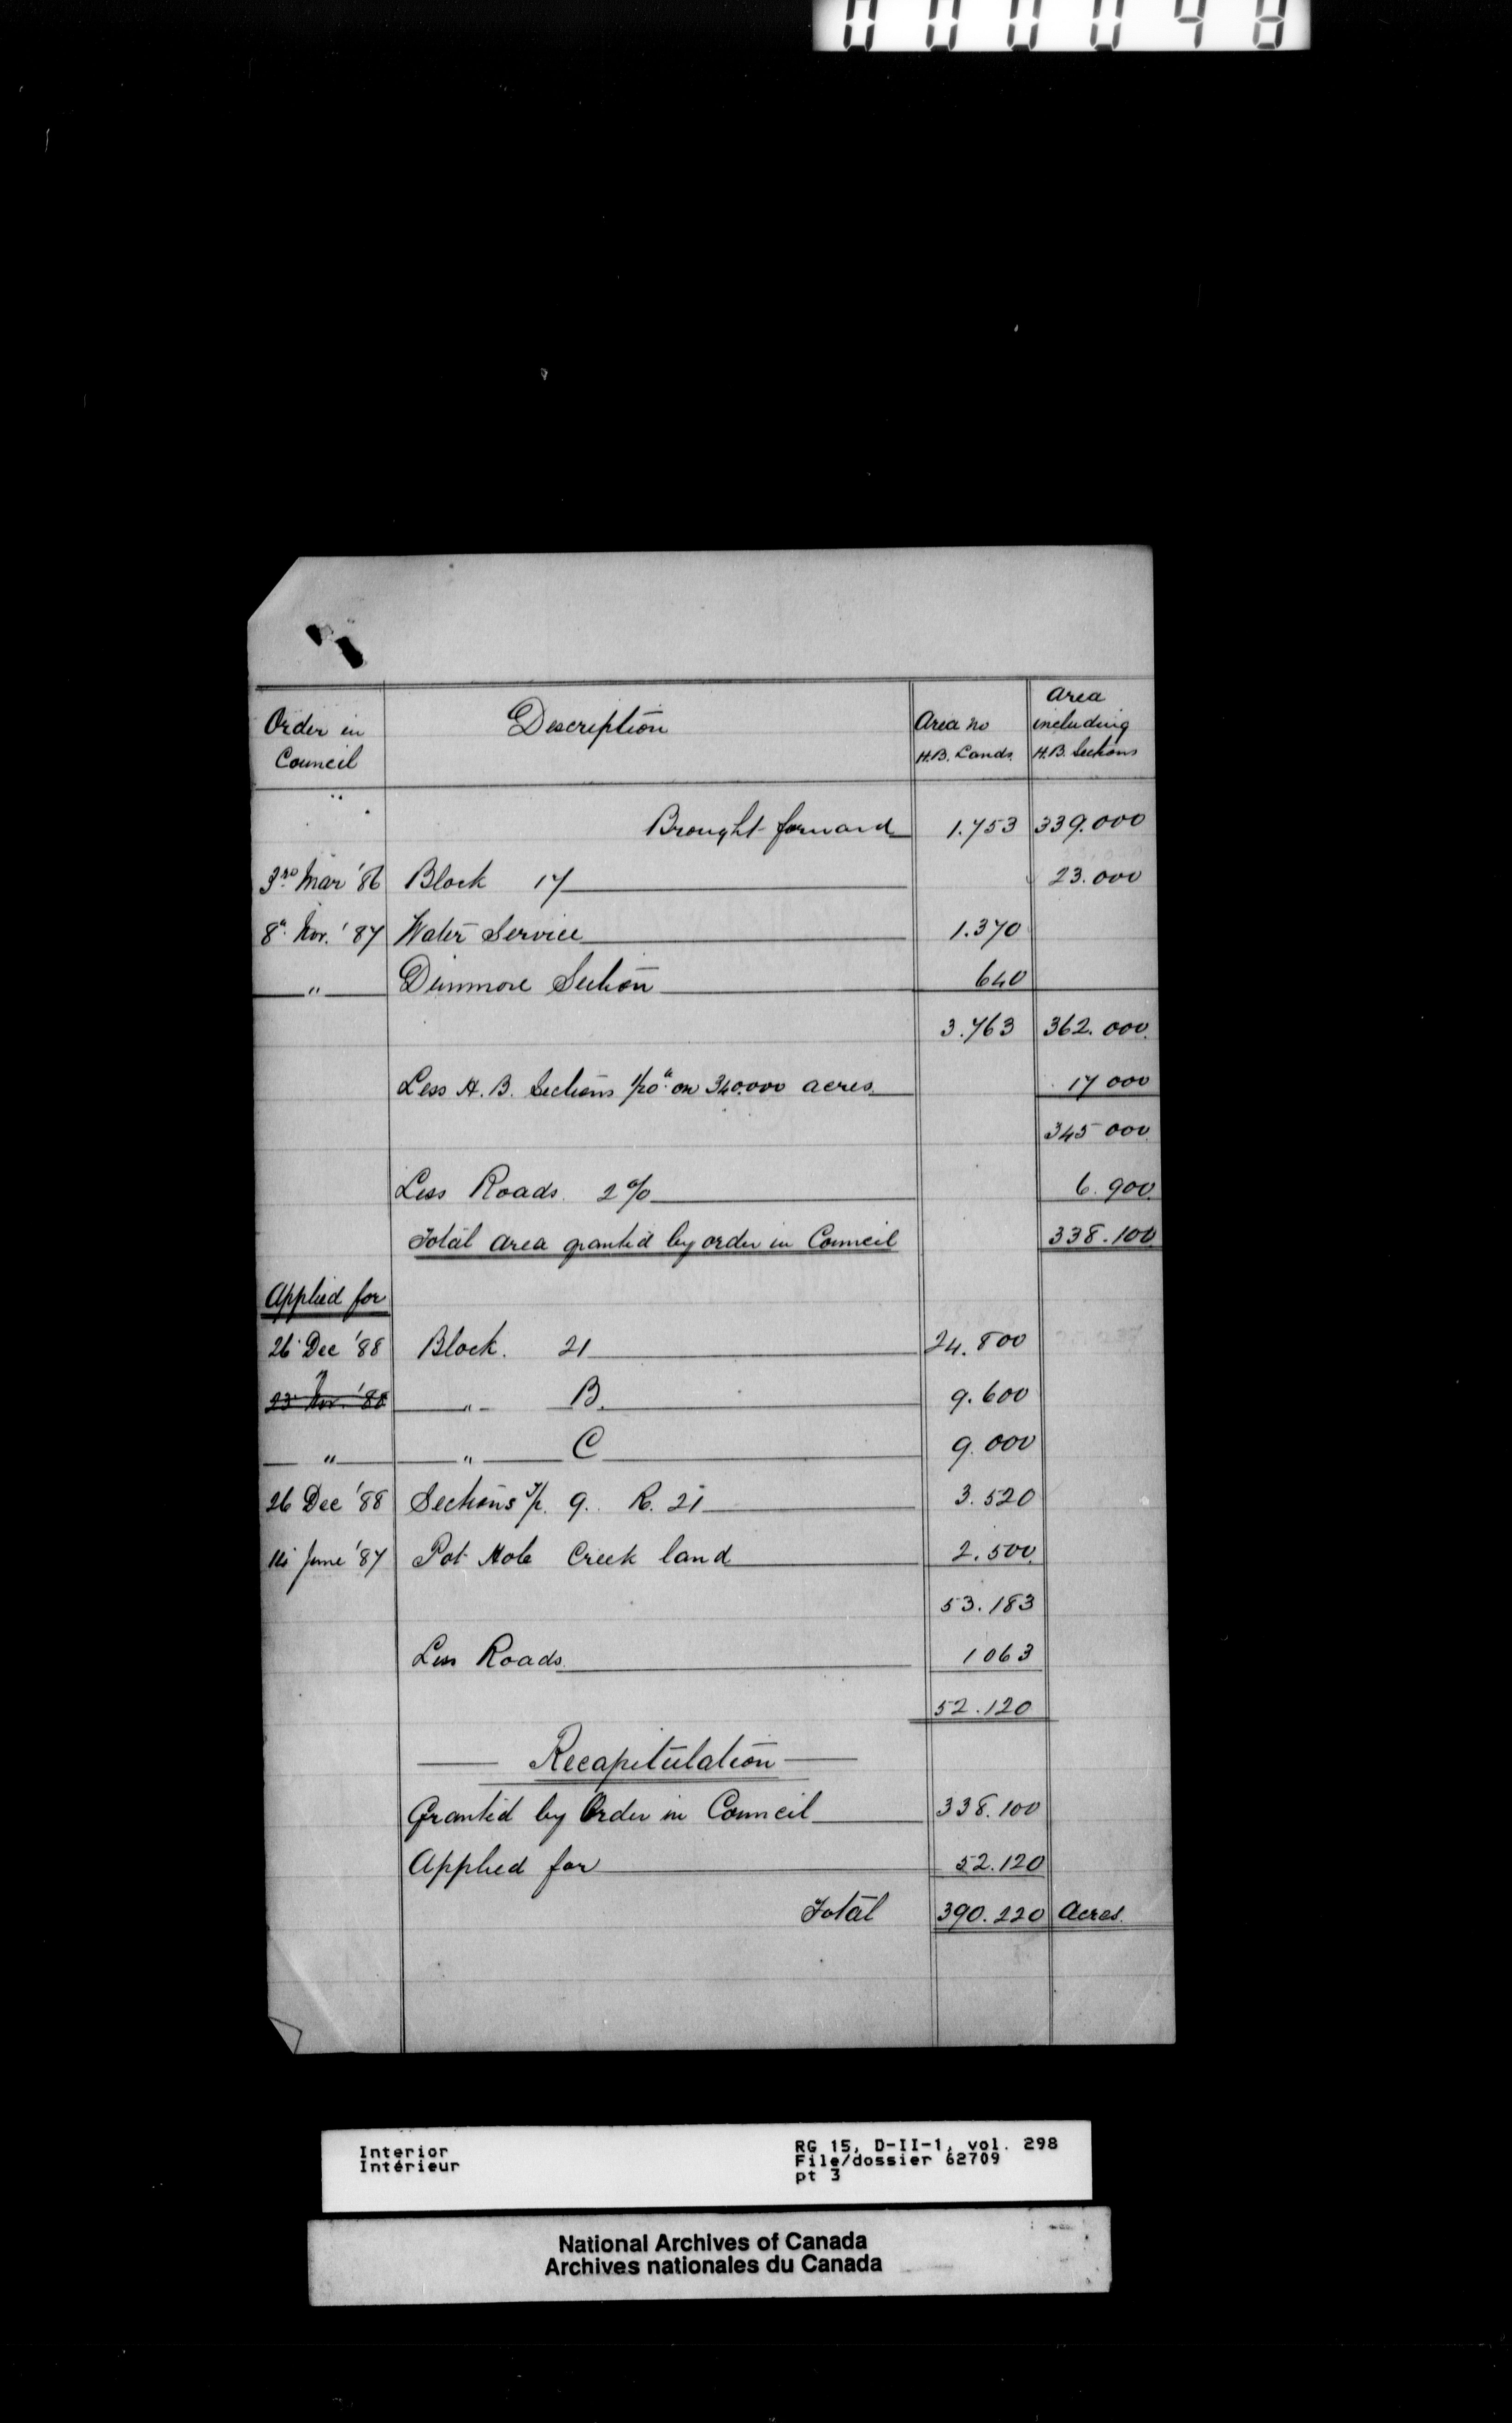 000048
Order in Council Description Area no H.B. Lands. Area including H.B. Sections
Brought forward 1.753 339.000
3rd Mar '86 Block 17 23.000
8th Nov. '87 Water Service 1.370
" Dunmore Section 640
3.763 362.000
Less H.B. Sections 1/20th on 340.000 acres 17 000
345 000
Less Roads. 2% 6.900
Total area granted by order in Council 338.100
Applied for
26 Dec '88 Block. 21 24.800
23 Nov. '88 " B. 9.600
" " C 9.000
26 Dec '88 Sections Tp. 9. R. 21 3.520
14 June '87 Pot Hole Creek land 2.500
53.183
Less Roads 1063
52.120
Recapitulation
Granted by Order in Council 338.100
Applied for 52.120
Total 390.220 Acres.
Interior
Intérieur
RG 15, D-II-1, vol. 298
File/dossier 62709
pt 3
National Archives of Canada
Archives nationales du Canada